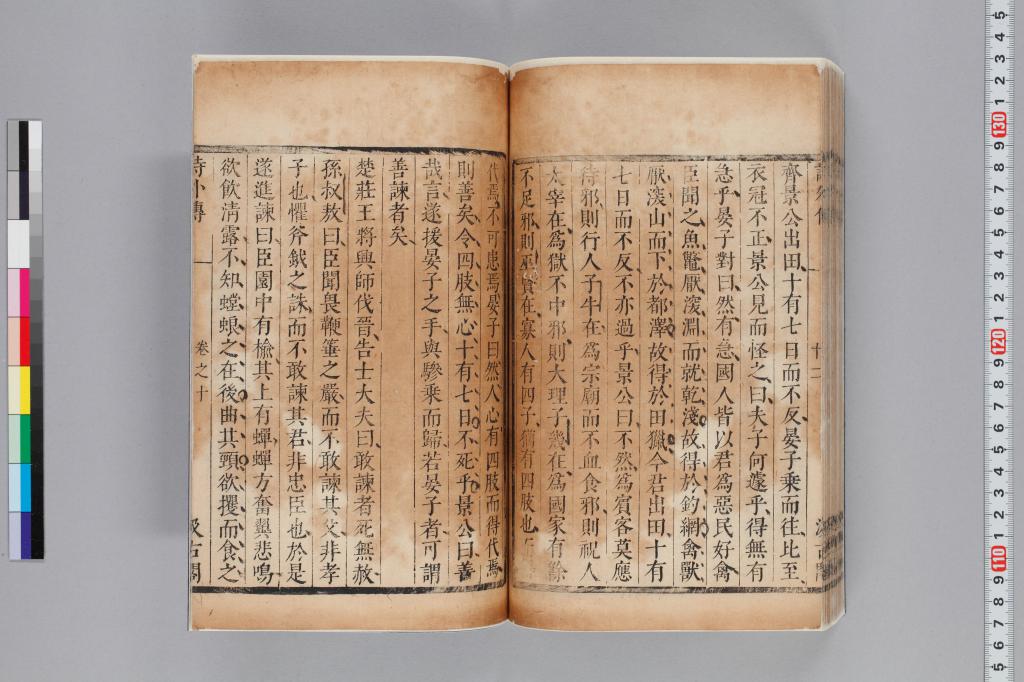 齊景公出田十有七日而不反晏子乘而往比至
衣冠不正景公見而怪之曰夫子何遽乎得無有
急乎晏子對曰然有急國人皆以君爲惡民好禽
臣聞之魚鼈厭深淵而就乾淺故得於釣網禽獸
厭深山而下於都澤故得於田獵今君出田十有
七日而不反不亦過乎景公曰不然爲賓客莫應
待邪則行人子牛在爲宗廟而不血食邪則祝人
太宰在爲獄不中邪則大理子幾在爲國家有餘
不足邪則巫賢在寡人有四子猶有四肢也而得
代焉不可患焉晏子曰然人心有四肢而得代焉
則善矣令四肢無心十有七日不死乎景公曰善
哉言遂援晏子之手與驂乘而歸若晏子者可謂
善諫者矣
楚莊王將興師伐晉告士大夫曰敢諫者死無赦
孫叔敖曰臣聞畏鞭箠之嚴而不敢諫其父非孝
子也懼斧鉞之誅而不敢諫其君非忠臣也於是
遂進諫曰臣園中有榆其上有蟬蟬方奮翼悲鳴
欲飲清露不知螳蜋之在後曲其頸欲攫而食之
詩外傳
卷之十
汲古閣